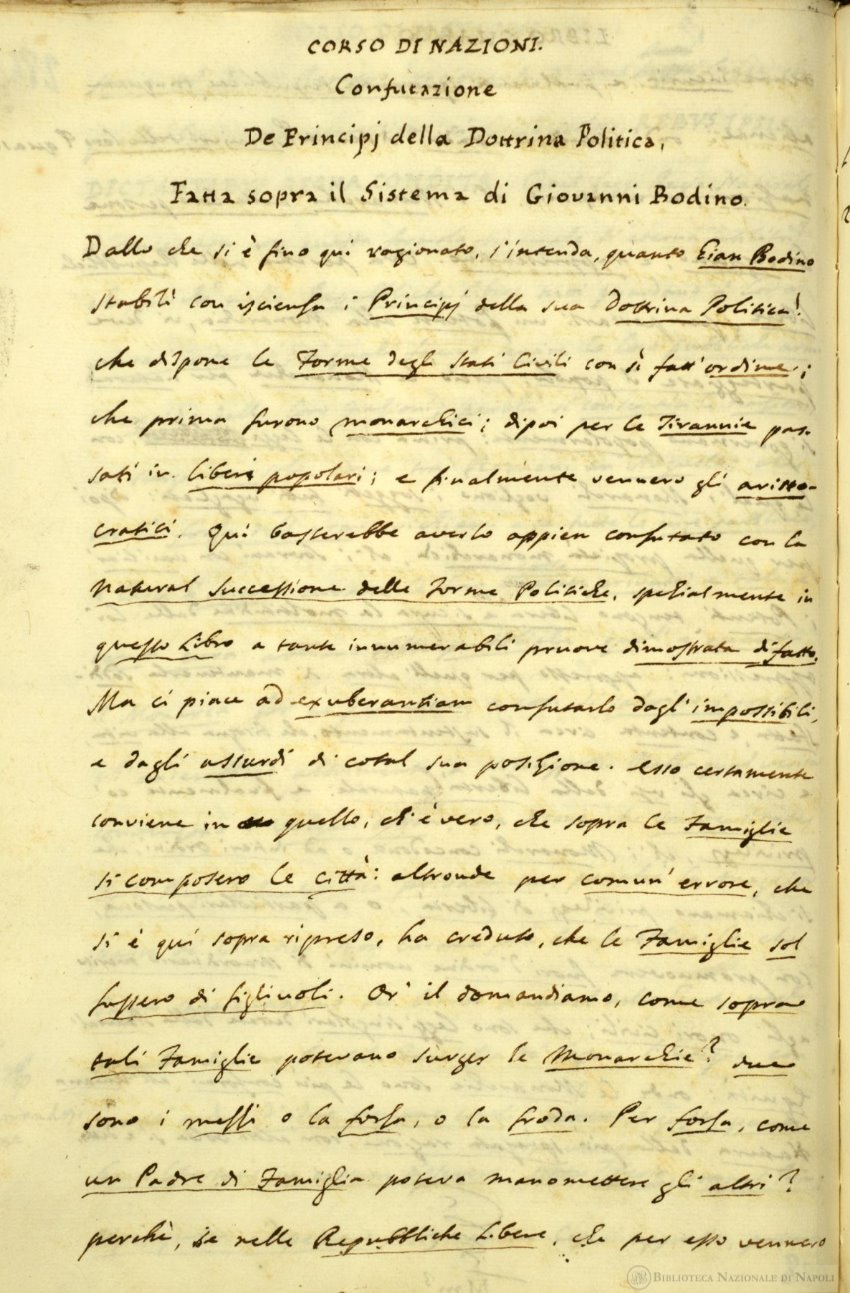 CORSO DI NAZIONI.
Confutazione
De' Principj della Dottrina Politica,
Fatta sopra il Sistema di Giovanni Bodino.
Dallo che si è fino qui ragionato, s'intenda, quanto Gian Bodino
stabilì con iscienza i Principj della sua Dottrina Politica!
che dispone le Forme degli Stati Civili con sì fatt'ordine;
che prima furono monarchici; dipoi per le Tirannie pas-
sati in liberi popolari; e finalmente vennero gli aristo-
cratici. Qui basterebbe averlo appien confutato con la
natural Successione delle Forme Politiche, spezialmente in
questo Libro a tante innumerabili pruove dimostrata di fatto.
Ma ci piace ad exuberantiam confutarlo dagl'impossibili,
e dagli assurdi di cotal sua posizione. Esso certamente
conviene in quello, ch'è vero, che sopra le Famiglie
si composero le città: altronde per comun'errore, che
si è qui sopra ripreso, ha creduto, che le Famiglie sol
fussero di figliuoli. Or' il domandiamo, come sopra
tali Famiglie potevano surger le Monarchie? due
sono i mezzi o la forza, o la froda. Per forza, come
un Padre di Famiglia poteva manomettere gli altri?
perchè, se nelle Repubbliche Libere, che per esso vennero
BIBLIOTECA NAZIONALE DI NAPOLI